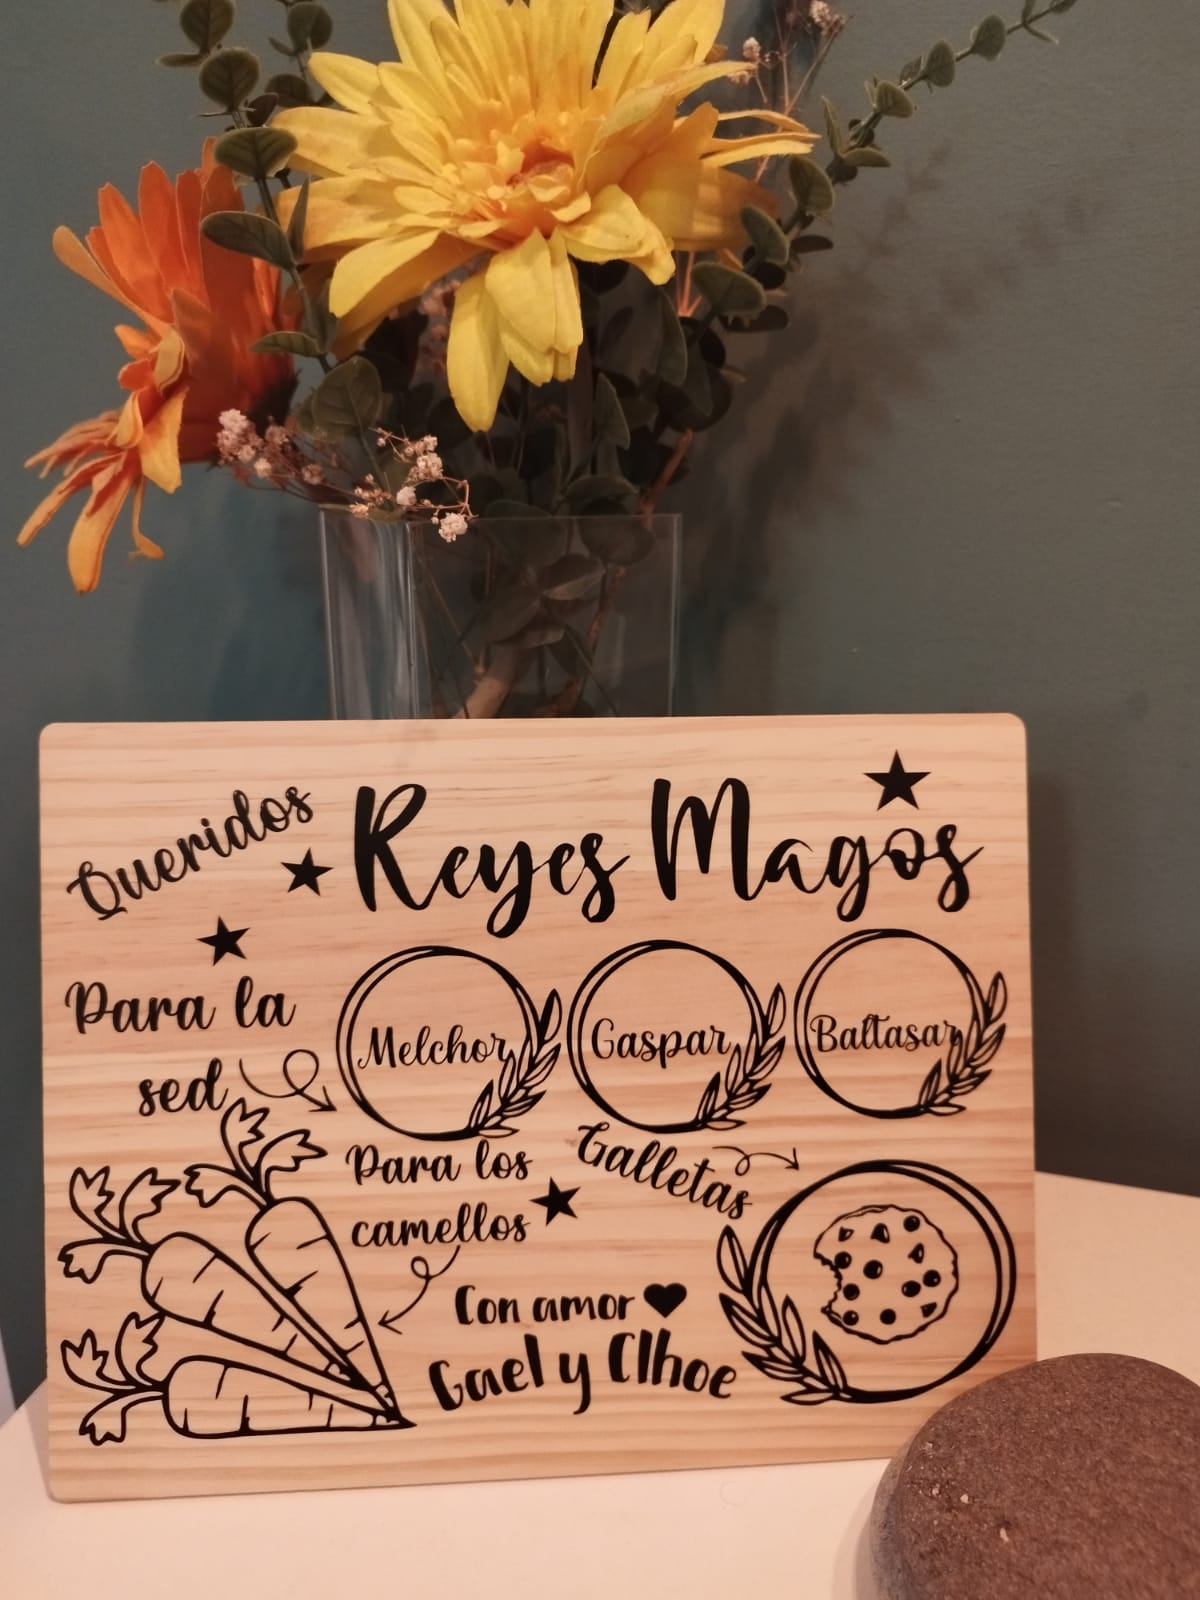 Queridos
Reyes Magos
Para la
sed
Melchor
Gaspar
Baltasar
Para los
camellos
Galletas
Con amor
Gael y Clhoe